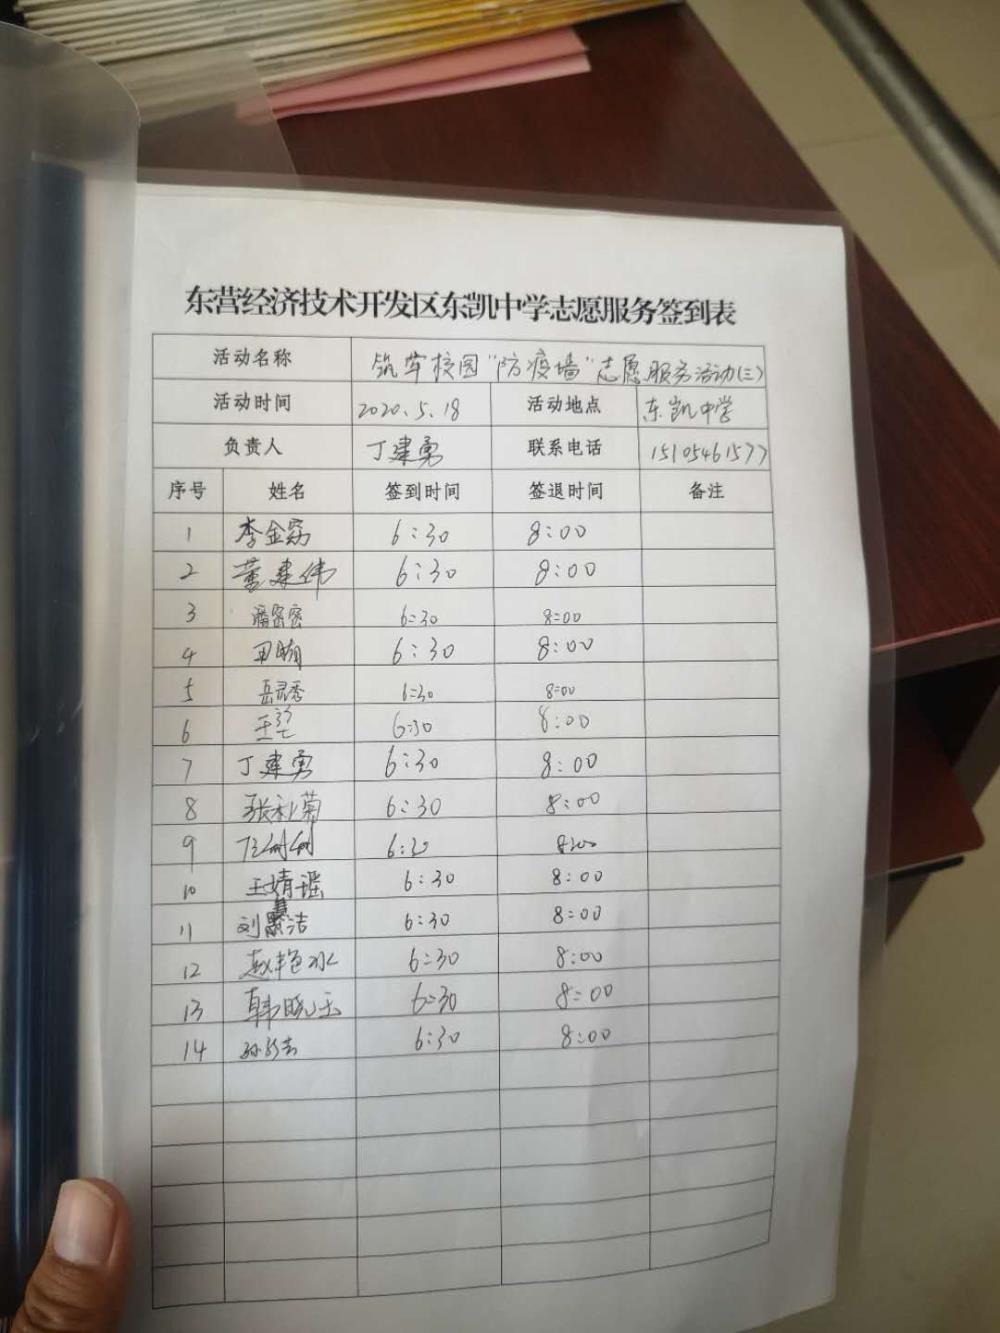 东营经济技术开发区东凯中学志愿服务签到表
活动名称 筑牢校园“防疫墙”志愿服务活动(三)
活动时间 2020.5.18 活动地点 东凯中学
负责人 丁建勇 联系电话 15105461577
序号 姓名 签到时间 签退时间 备注
1 李金 6:30 8:00
2 董建伟 6:30 8:00
3 潘密密 6:30 8:00
4 田 6:30 8:00
5 岳灵秀 6:30 8:00
6 王 6:30 8:00
7 丁建勇 6:30 8:00
8 张利菊 6:30 8:00
9 6:30 8:00
10 王婧瑶 6:30 8:00
11 刘慧洁 6:30 8:00
12 赵艳冰 6:30 8:00
13 韩晓玉 6:30 8:00
14 孙 6:30 8:00